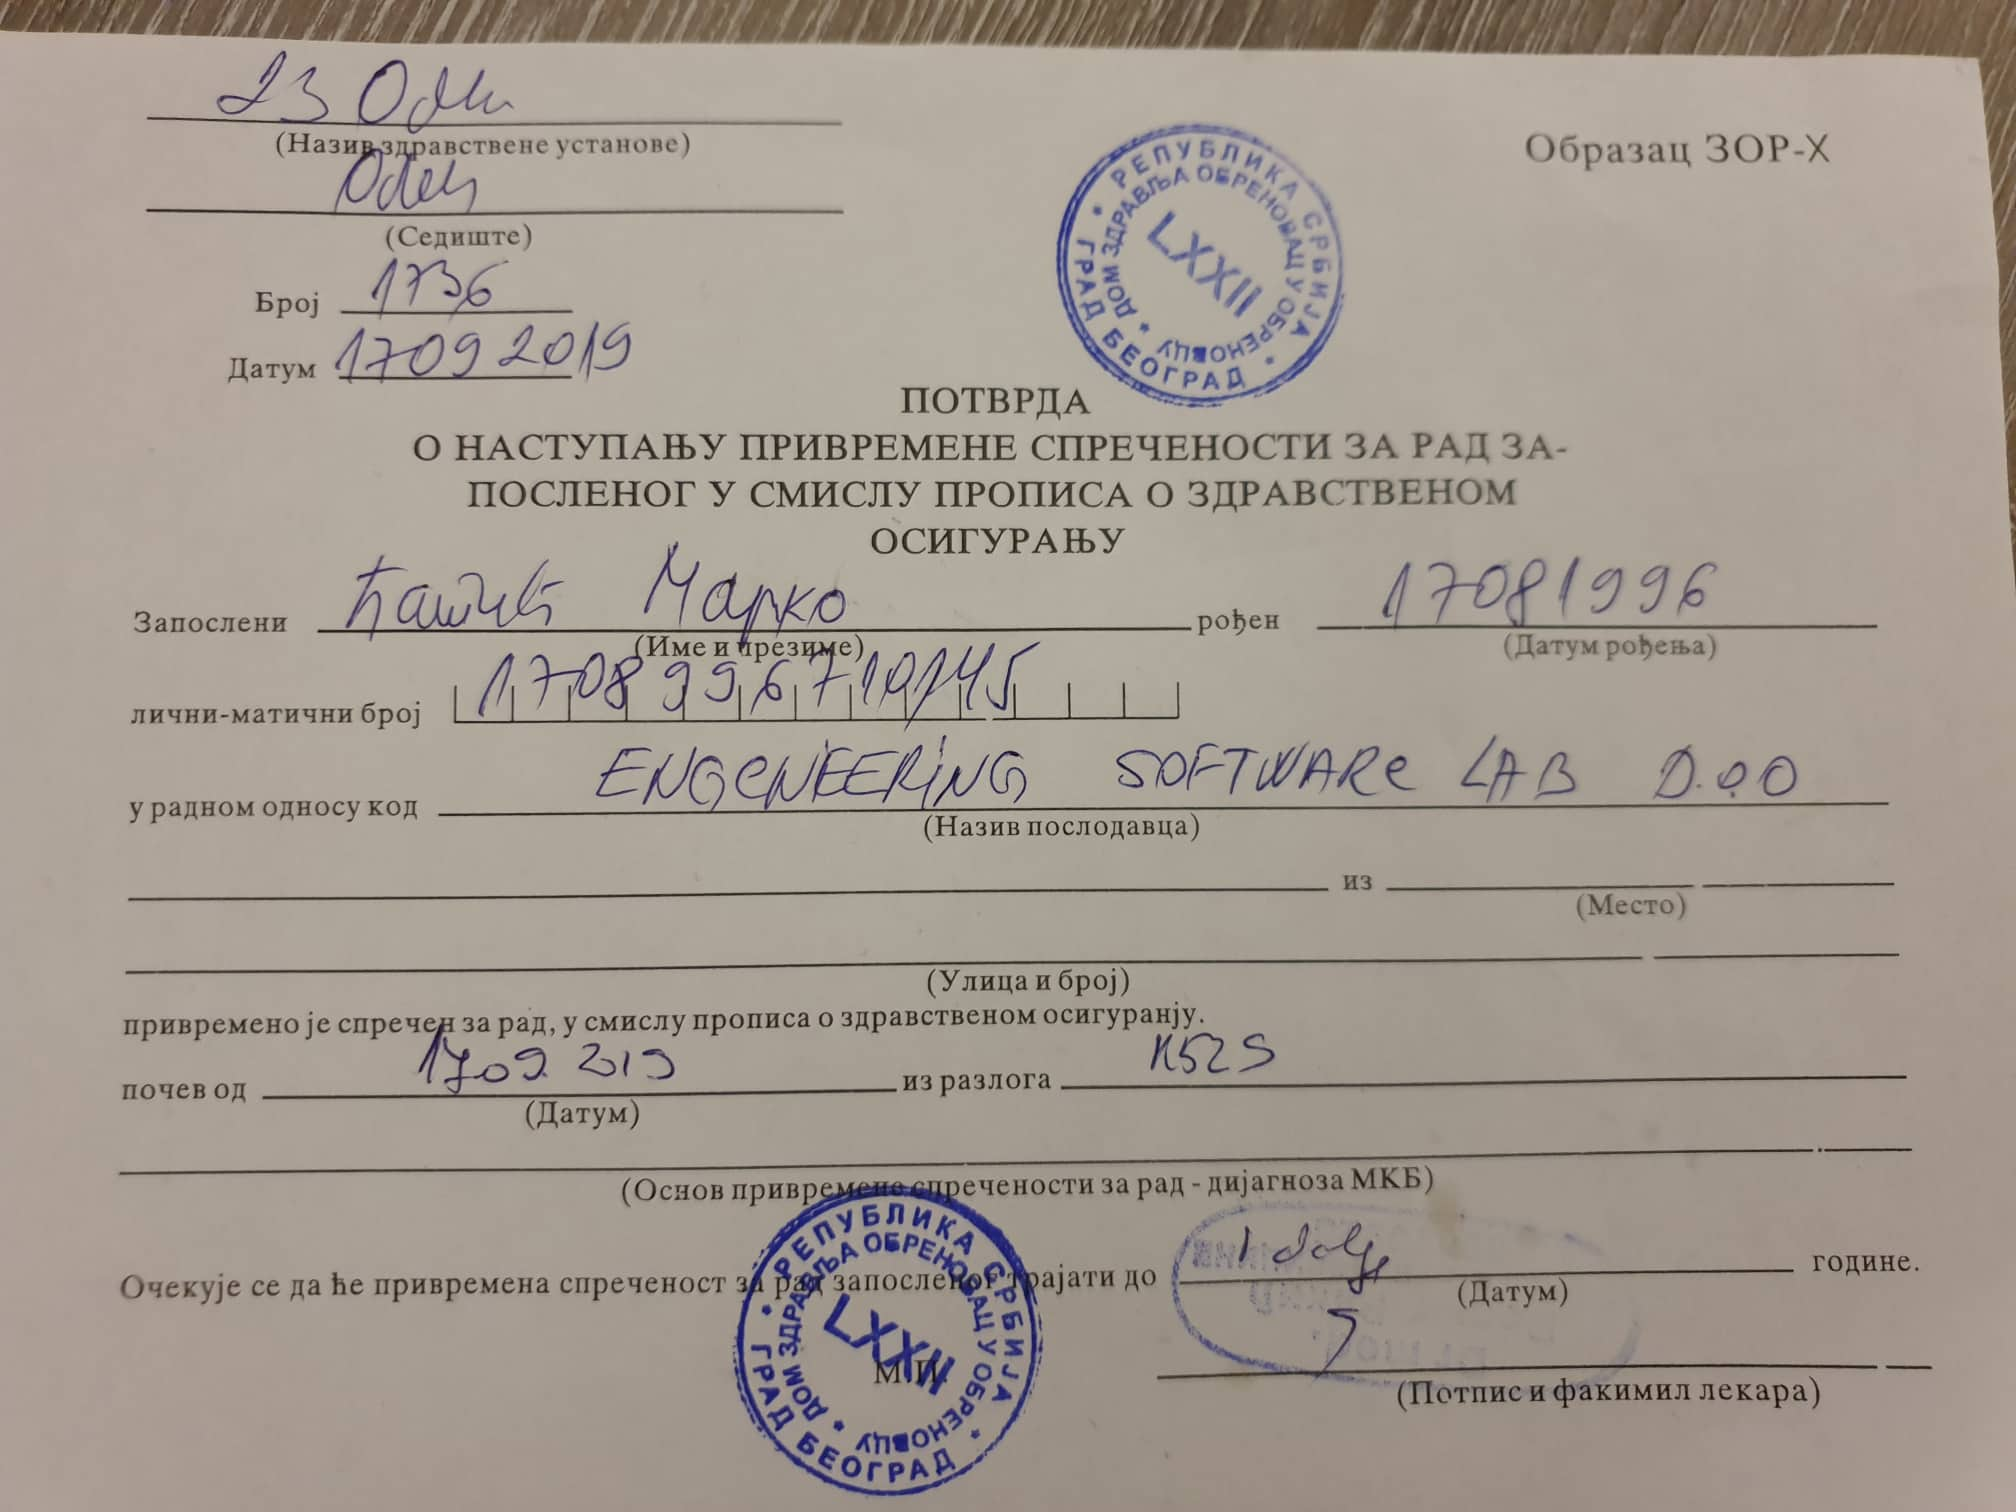 (Назив здравствене установе)
Образац ЗОР-X
(Седиште)
Број 1736
Датум 17 09 2019
РЕПУБЛИКА СРБИЈА * ГРАД БЕОГРАД *
ДОМ ЗДРАВЉА ОБРЕНОВАЦ У ОБРЕНОВЦУ *
LXXII
ПОТВРДА
О НАСТУПАЊУ ПРИВРЕМЕНЕ СПРЕЧЕНОСТИ ЗА РАД ЗА-
ПОСЛЕНОГ У СМИСЛУ ПРОПИСА О ЗДРАВСТВЕНОМ
ОСИГУРАЊУ
Запослени Марко рођен 17081996
(Име и презиме) (Датум рођења)
лични-матични број 1708996710145
у радном односу код ENGENEERING SOFTWARE LAB D.O.O
(Назив послодавца)
из
(Место)
(Улица и број)
привремено је спречен за рад, у смислу прописа о здравственом осигурању.
почев од 1709 2019 из разлога K529
(Датум)
(Основ привремене спречености за рад - дијагноза МКБ)
Очекује се да ће привремена спреченост за рад запосленог трајати до I даље године.
(Датум)
РЕПУБЛИКА СРБИЈА * ГРАД БЕОГРАД *
ДОМ ЗДРАВЉА ОБРЕНОВАЦ У ОБРЕНОВЦУ *
LXXII
М.П.
(Потпис и факимил лекара)